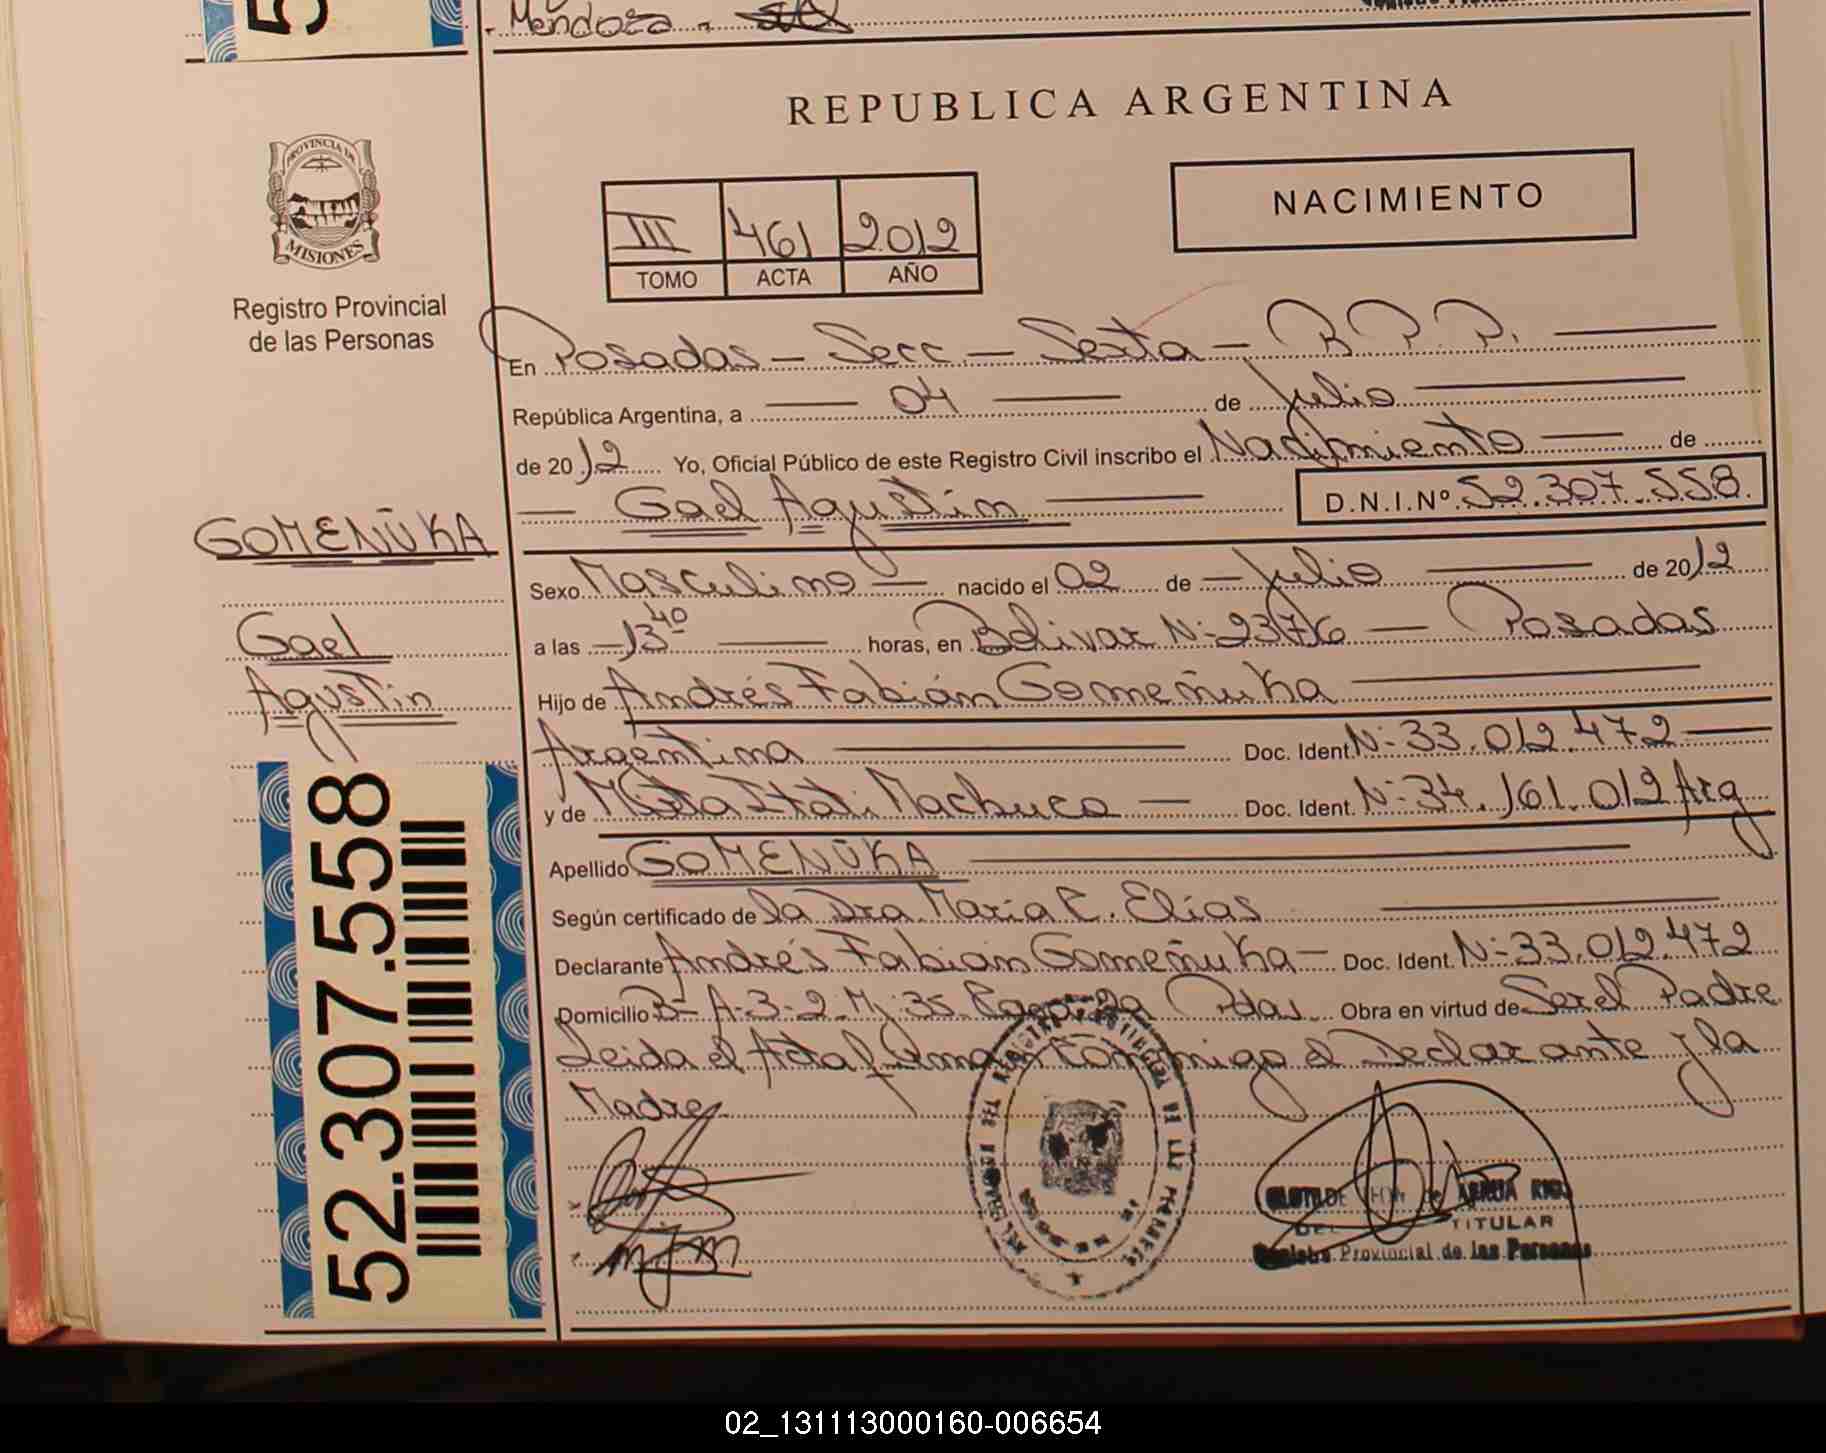 Mendoza.
REPUBLICA ARGENTINA
PROVINCIA DE
MISIONES
Registro Provincial
de las Personas
NACIMIENTO
III 461 2012
TOMO ACTA AÑO
En Posadas - Secc - Sexta - R.P.P.
República Argentina, a 04 de Julio
de 2012 Yo, Oficial Público de este Registro Civil inscribo el Nacimiento de
Gael Agustin D.N.I.Nº 52.307.558
GOMEÑUKA
Gael
Agustin
52.307.558
Sexo Masculino nacido el 02 de Julio de 2012
a las 13 40 horas, en Bolivar Nº 2376 - Posadas
Hijo de Andrés Fabián Gomeñuka
Argentina Doc. Ident. Nº 33.012.472
y de Mirta Itatí Machuca Doc. Ident. Nº 34.161.012 Arg
Apellido GOMEÑUKA
Según certificado de la Dra María E. Elías
Declarante Andrés Fabián Gomeñuka Doc. Ident. Nº 33.012.472
Domicilio Bº A-3-2 Mz 35 Pdas Obra en virtud de Ser el Padre
Leida el Acta firman conmigo el Declarante y la
Madre
TITULAR
Registro Provincial de las Personas
02_131113000160-006654